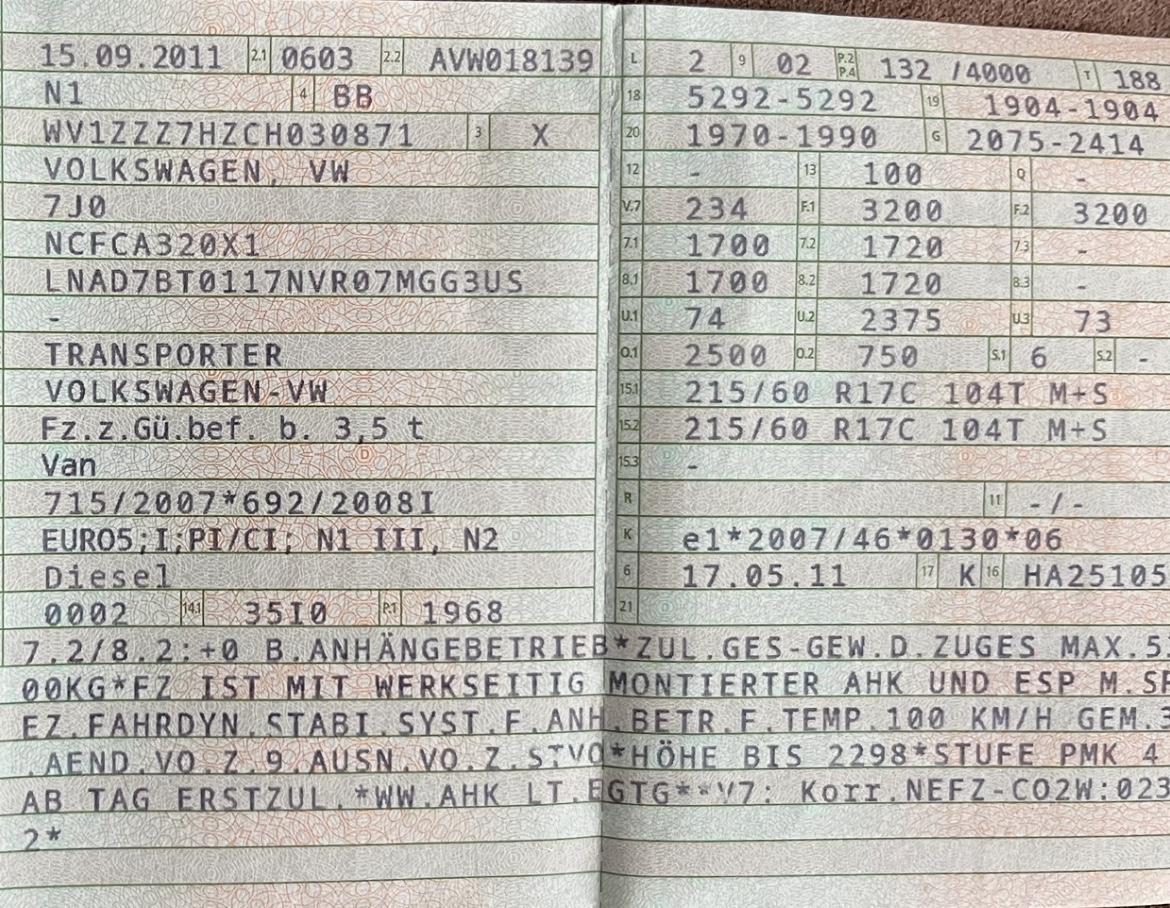 15.09.2011 2.1 0603 2.2 AVW018139
N1 4 BB
WV1ZZZ7HZCH030871 3 X
VOLKSWAGEN, VW
7J0
NCFCA320X1
LNAD7BT0117NVR07MGG3US
-
TRANSPORTER
VOLKSWAGEN-VW
Fz.z.Gü.bef. b. 3,5 t
Van
715/2007*692/2008I
EURO5;I;PI/CI; N1 III, N2
Diesel
0002 14.1 35I0 P.1 1968
L 2 9 02 P.2 P.4 132 /4000 T 188
18 5292-5292 19 1904-1904
20 1970-1990 G 2075-2414
12 - 13 100 Q -
V.7 234 F.1 3200 F.2 3200
7.1 1700 7.2 1720 7.3 -
8.1 1700 8.2 1720 8.3 -
U.1 74 U.2 2375 U.3 73
O.1 2500 O.2 750 S.1 6 S.2 -
15.1 215/60 R17C 104T M+S
15.2 215/60 R17C 104T M+S
15.3 -
R 11 -/-
K e1*2007/46*0130*06
6 17.05.11 17 K 16 HA25105
21
7.2/8.2:+0 B.ANHÄNGEBETRIEB*ZUL.GES-GEW.D.ZUGES MAX.5.
00KG*FZ IST MIT WERKSEITIG MONTIERTER AHK UND ESP M.SP
EZ.FAHRDYN.STABI.SYST.F.ANH.BETR.F.TEMP.100 KM/H GEM.3
.AEND.VO.Z.9.AUSN.VO.Z.STVO*HÖHE BIS 2298*STUFE PMK 4
AB TAG ERSTZUL.*WW.AHK LT.EGTG**V7: Korr.NEFZ-CO2W:023
2*